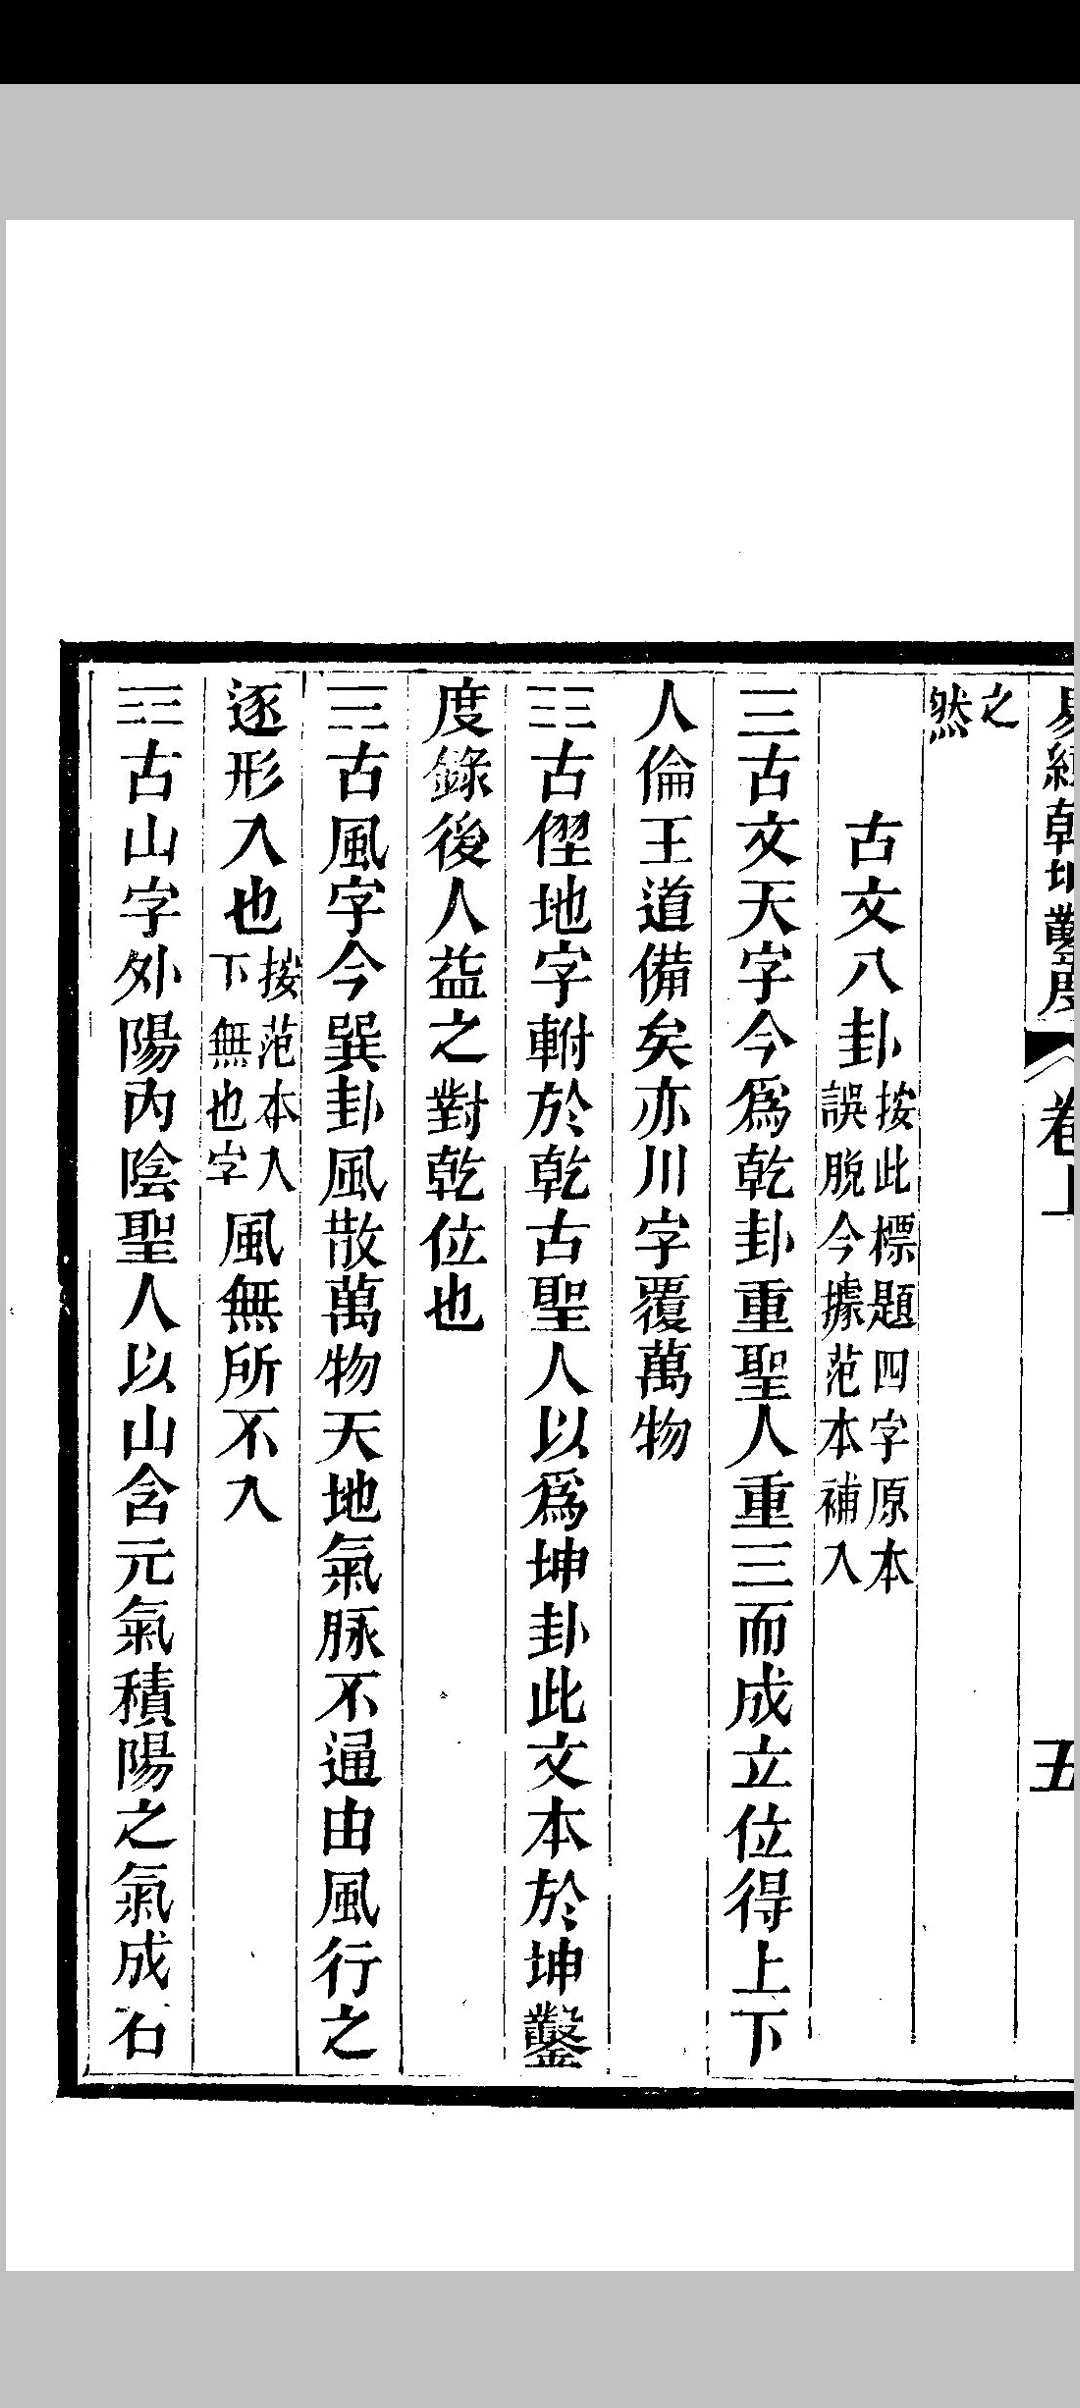 易緯乾坤鑿度 卷上 五
之
然
古文八卦
按此標題四字原本
誤脫今據范本補入
☰古文天字今爲乾卦重聖人重三而成立位得上下
人倫王道備矣亦川字覆萬物
☷古地字軵於乾古聖人以爲坤卦此文本於坤鑿
度錄後人益之對乾位也
☴古風字今巽卦風散萬物天地氣脉不通由風行之
逐形入也
按范本入
下無也字
風無所不入
☶古山字外陽内陰聖人以山含元氣積陽之氣成石